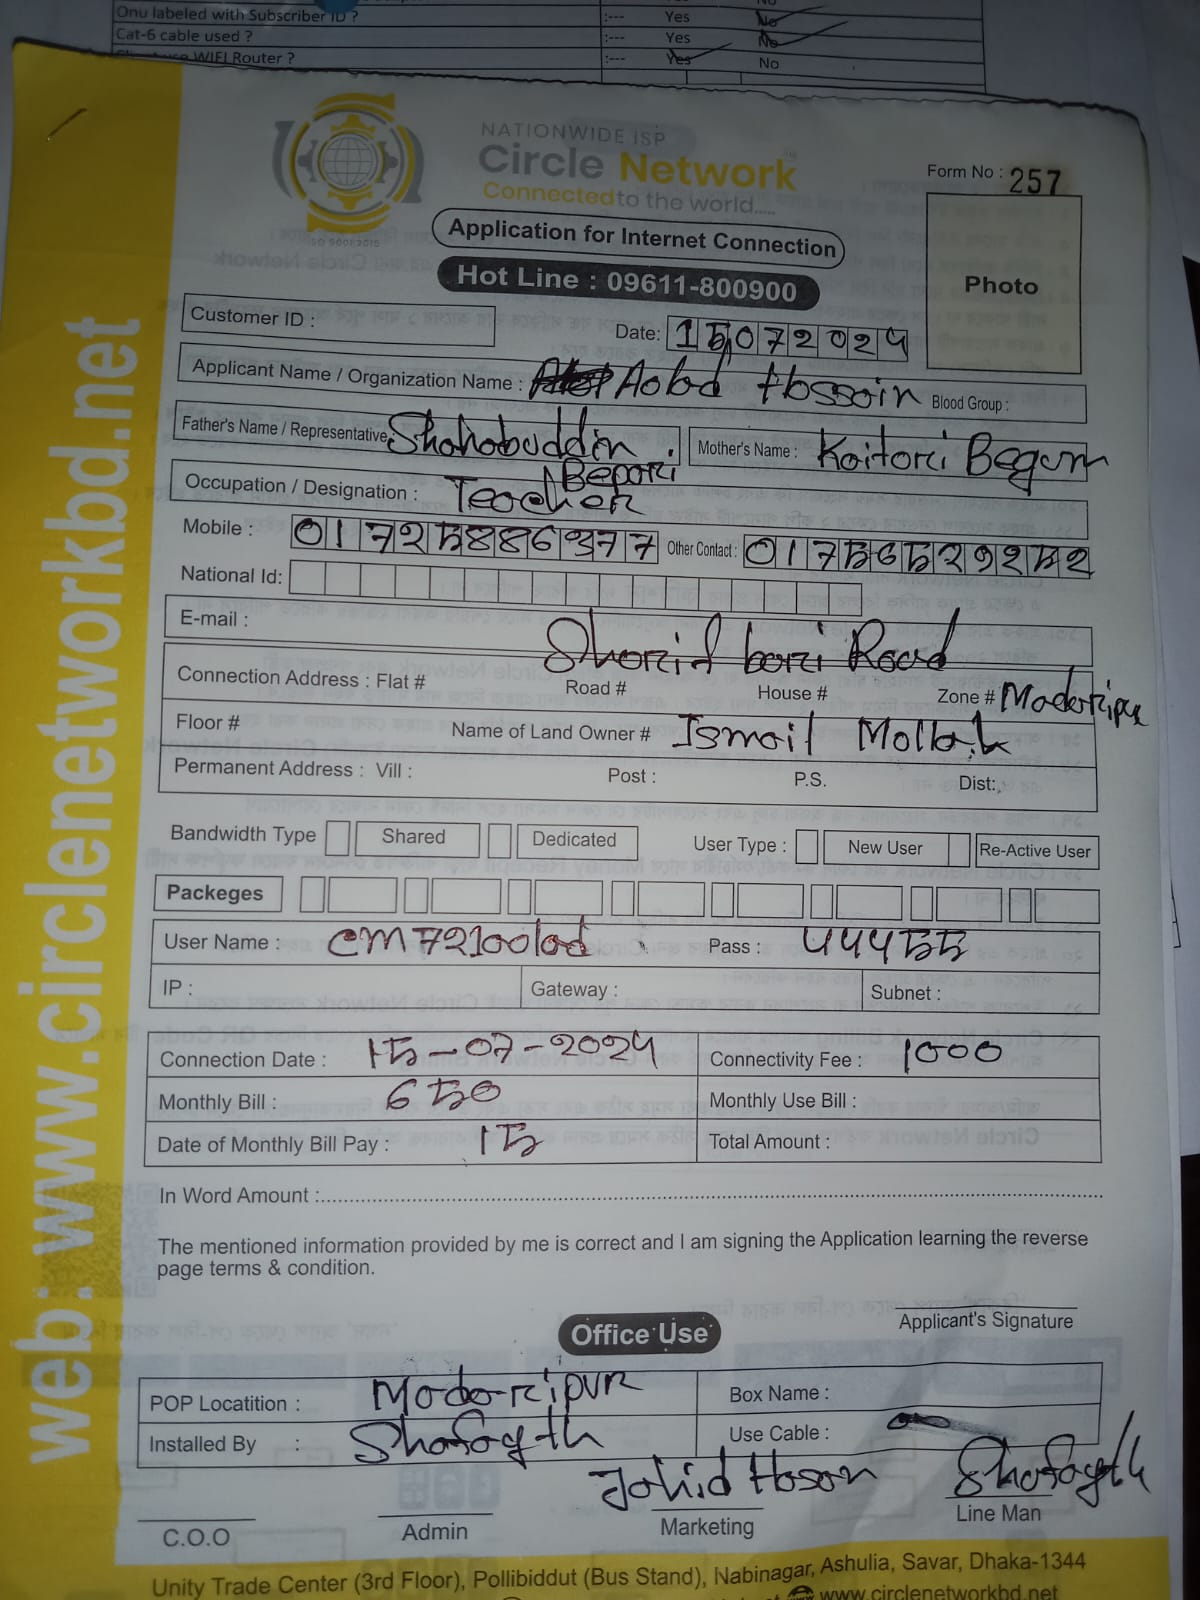 Onu labeled with Subscriber ID ? :--- Yes No
Cat-6 cable used ? :--- Yes No
WIFI Router ? :--- Yes No
NATIONWIDE ISP
Circle Network
Connected to the world.....
ISO 9001:2015
Form No : 257
Application for Internet Connection
Hot Line : 09611-800900
Photo
Customer ID :
Date: 15072024
Applicant Name / Organization Name : Aobd Hossoin Blood Group :
Father's Name / Representative Shohobuddin Bepori Mother's Name : Koitori Begom
Occupation / Designation : Teacher
Mobile : 01725886977 Other Contact : 01756529252
National Id:
E-mail :
Shorif bori Road
Connection Address : Flat # Road # House # Zone # Madoripur
Floor # Name of Land Owner # Ismoil Mollah
Permanent Address : Vill : Post : P.S. Dist:
Bandwidth Type Shared Dedicated User Type : New User Re-Active User
Packeges
User Name : Pass : 44455
IP : Gateway : Subnet :
Connection Date : 15-07-2024 Connectivity Fee : 1000
Monthly Bill : 650 Monthly Use Bill :
Date of Monthly Bill Pay : 15 Total Amount :
In Word Amount :
The mentioned information provided by me is correct and I am signing the Application learning the reverse
page terms & condition.
Applicant's Signature
Office Use
POP Locatition : Modoripur Box Name :
Installed By : Shofayth Use Cable :
Johid Hoson Shofayth
C.O.O Admin Marketing Line Man
Unity Trade Center (3rd Floor), Pollibiddut (Bus Stand), Nabinagar, Ashulia, Savar, Dhaka-1344
www.circlenetworkbd.net
web: www.circlenetworkbd.net